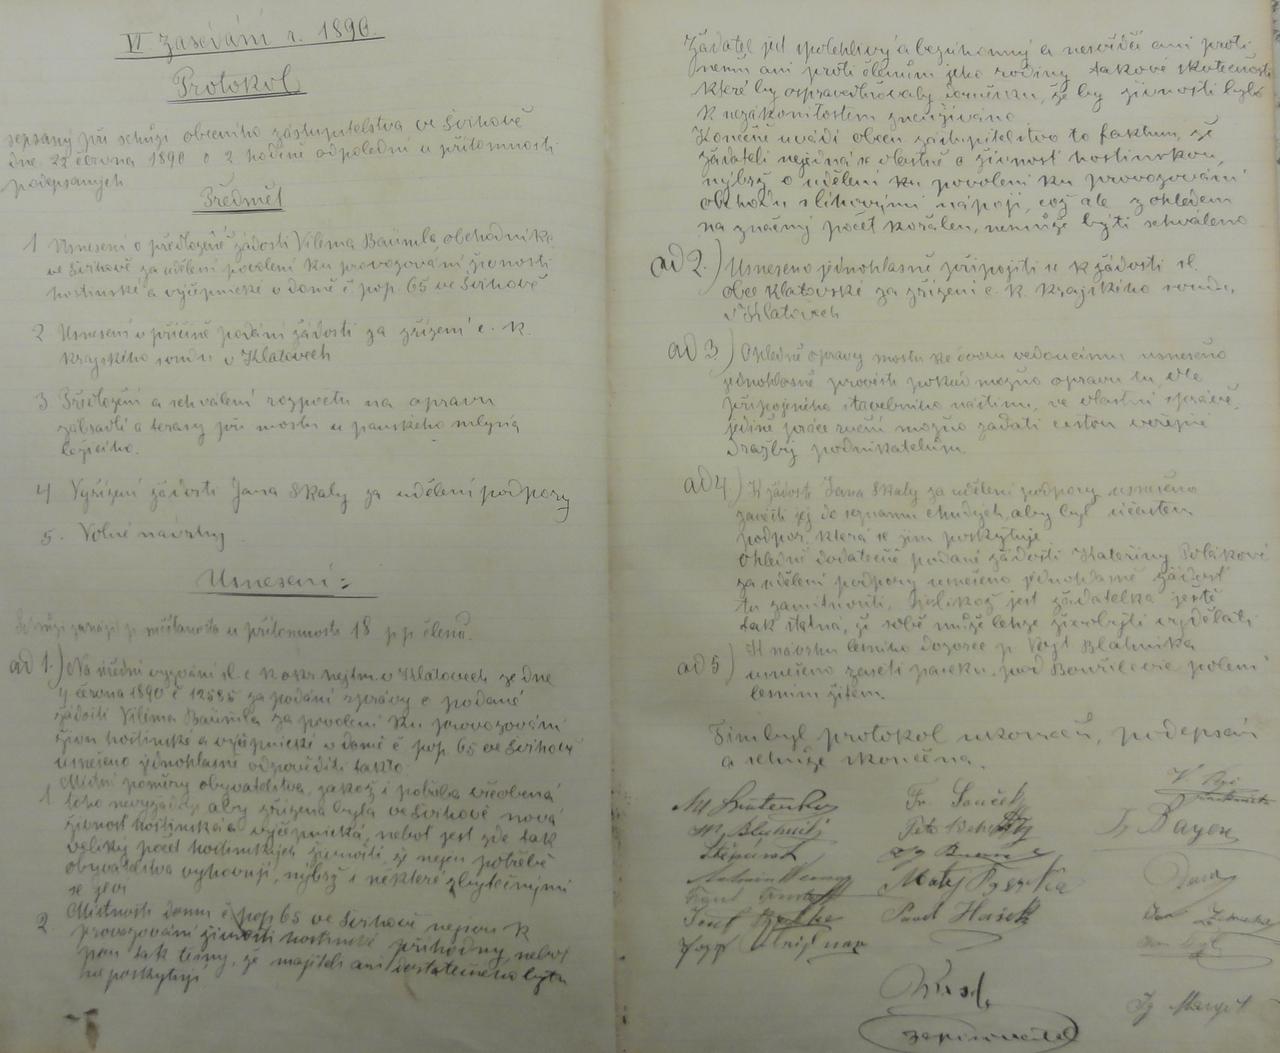 VI zasedání r. 1890.
Protokol
sepsaný při schůzi obecního zastupitelstva ve Švihově
dne 22 června 1890 o 2 hodině odpolední u přítomnosti
podepsaných
Předmět
1 Usnesení o předložené žádosti Viléma Bäumla obchodníka
ve Švihově za udělení povolení ku provozování živnosti
hostinské a výčepnické v domě č pop. 65 ve Švihově
2 Usnesení v příčině podání žádosti za zřízení c. k.
krajského soudu v Klatovech
3 Předložení a schválení rozpočtu na opravu
zábradlí a terasy při mostu u panského mlýna
ležícího.
4 Vyřízení žádosti Jana Skaly za udělení podpory
5. Volné návrhy
Usnesení:
p. měšťanosta u přítomnosti 18 p.p. členů.
ad 1.) Na úřední vyzvání sl. c k okr. hejtm. v Klatovech ze dne
4 června 1890 č 12585 za podání zprávy o podané
žádosti Viléma Bäumla za povolení ku provozování
živn hostinské a výčepnické v domě č pop. 65 ve Švihově
usneseno jednohlasně odpověditi takto:
1 Místní poměry obyvatelstva, jakož i potřeba všeobecná
toho nevyžadují aby zřízena byla ve Švihově nová
živnost hostinská a výčepnická, neboť jest zde tak
velký počet hostinských živností, že nejen potřebě
obyvatelstva vyhovují, nýbrž i některé zbytečnými
se jeví
2 Místnosti domu č pop 65 ve Švihově nejsou k
provozování živnosti hostinské příhodny, neboť
jsou tak těsny, že majiteli ani dostatečného bytu
neposkytují
Žadatel jest spolehlivý a bezúhonný a nesvědčí ani proti
němu ani proti členům jeho rodiny takové skutečnosti
které by ospravedlňovaly domněnku, že by živnosti bylo
k nezákonitostem zneužíváno
Konečně uvádí obec. zastupitelstvo to faktum, že
žadateli nejedná se vlastně o živnost hostinskou,
nýbrž o udělení ku povolení ku provozování
obchodu s lihovými nápoji, což ale z ohledem
na značný počet kořalen, nemůže býti schváleno
ad 2.) Usneseno jednohlasně připojiti se k žádosti sl.
obce Klatovské za zřízení c. k. krajského soudu
v Klatovech
ad 3) Ohledně opravy mostu ke dvoru vedoucímu usneseno
jednohlasně provésti pokud možno opravu tu, dle
připojeného stavebního náčrtu, ve vlastní správě,
jedině práce ruční možno zadati cestou veřejné
dražby podnikatelům.
ad 4) K žádosti Jana Skaly za udělení podpory usneseno
zanésti jej do seznamu chudých, aby byl účasten
podpor, která se jim poskytuje
Ohledně dodatečně podané žádosti Kateřiny Polákové
za udělení podpory usneseno jednohlasně žádost
tu zamítnouti, jelikož jest žadatelka ještě
tak statná, že sobě může lehce živobytí vydělati
ad 5) K návrhu lesního dozorce p Vojt Blahníka
usneseno zaseti paseku pod Bouřilcovic polem
lesním žitem.
Tím byl protokol ukončen, podepsán
a schůze skončena.
Fr. Souček
Bayer
Štěpánek
Matěj
Pavel Hašek
Josef
Ig Margit
zapisovatel